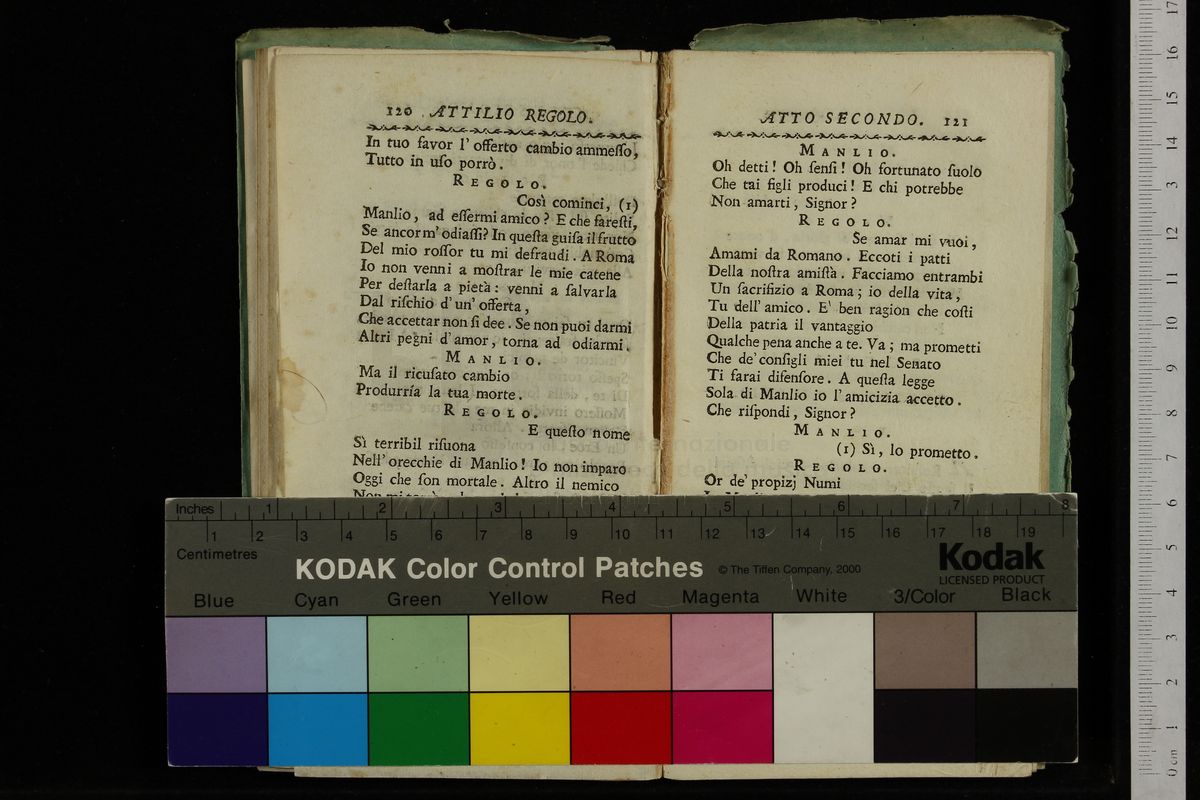 120 ATTILIO REGOLO.
In tuo favor l' offerto cambio ammeſſo,
Tutto in uſo porrò.
REGOLO.
Così cominci, (1)
Manlio, ad eſſermi amico? E che fareſti,
Se ancor m' odiaſſi? In queſta guiſa il frutto
Del mio roſſor tu mi defraudi. A Roma
Io non venni a moſtrar le mie catene
Per deſtarla a pietà: venni a ſalvarla
Dal riſchio d' un' offerta,
Che accettar non ſi dee. Se non puoi darmi
Altri pegni d' amor, torna ad odiarmi.
MANLIO.
Ma il ricuſato cambio
Produrría la tua morte.
REGOLO.
E queſto nome
Sì terribil riſuona
Nell' orecchie di Manlio! Io non imparo
Oggi che ſon mortale. Altro il nemico
ATTO SECONDO. 121
MANLIO.
Oh detti! Oh ſenſi! Oh fortunato ſuolo
Che tai figli produci! E chi potrebbe
Non amarti, Signor?
REGOLO.
Se amar mi vuoi,
Amami da Romano. Eccoti i patti
Della noſtra amiſtà. Facciamo entrambi
Un ſacrifizio a Roma; io della vita,
Tu dell' amico. E' ben ragion che coſti
Della patria il vantaggio
Qualche pena anche a te. Va; ma prometti
Che de' conſigli miei tu nel Senato
Ti farai difenſore. A queſta legge
Sola di Manlio io l' amicizia accetto.
Che riſpondi, Signor?
MANLIO.
(1) Sì, lo prometto.
REGOLO.
Or de' propizj Numi
Inches 1 2 3 4 5 6 7 8
1 2 3 4 5 6 7 8 9 10 11 12 13 14 15 16 17 18 19
Centimetres
KODAK Color Control Patches © The Tiffen Company, 2000
Kodak
LICENSED PRODUCT
Blue Cyan Green Yellow Red Magenta White 3/Color Black
0 cm 1 2 3 4 5 6 7 8 9 10 11 12 13 14 15 16 17